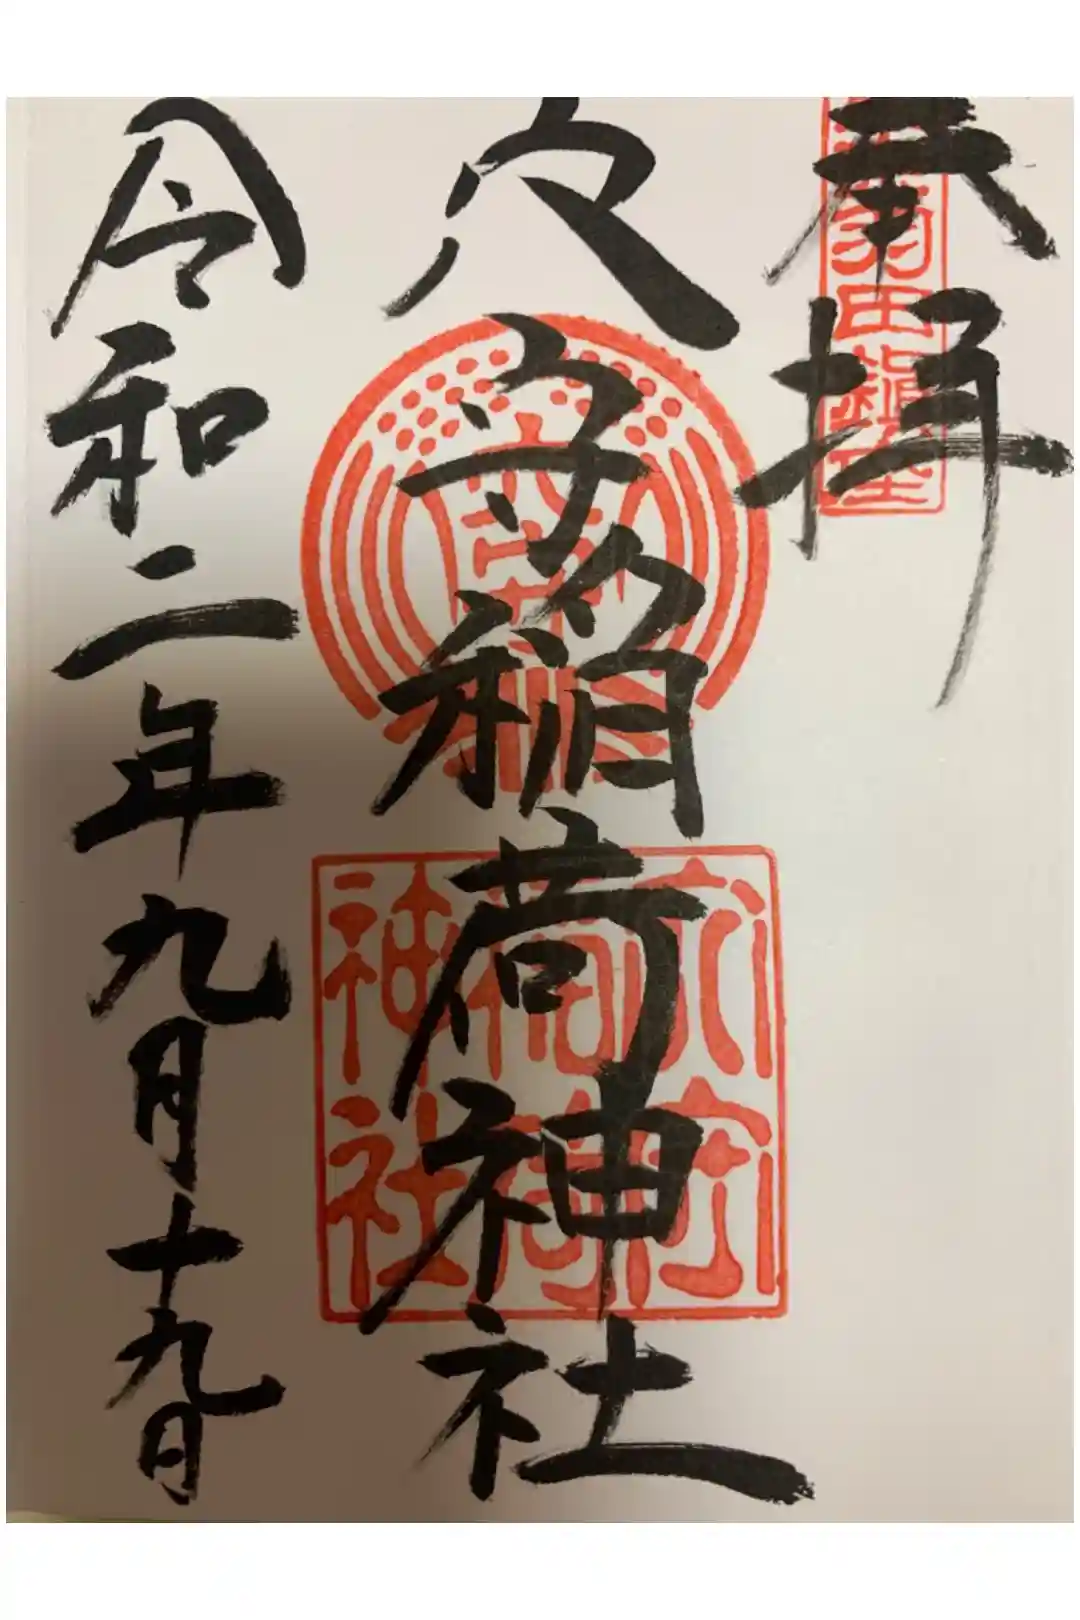 奉拝
羽田鎮座
穴守稲荷神社
穴守
稲荷
神社
令和二年九月十九日